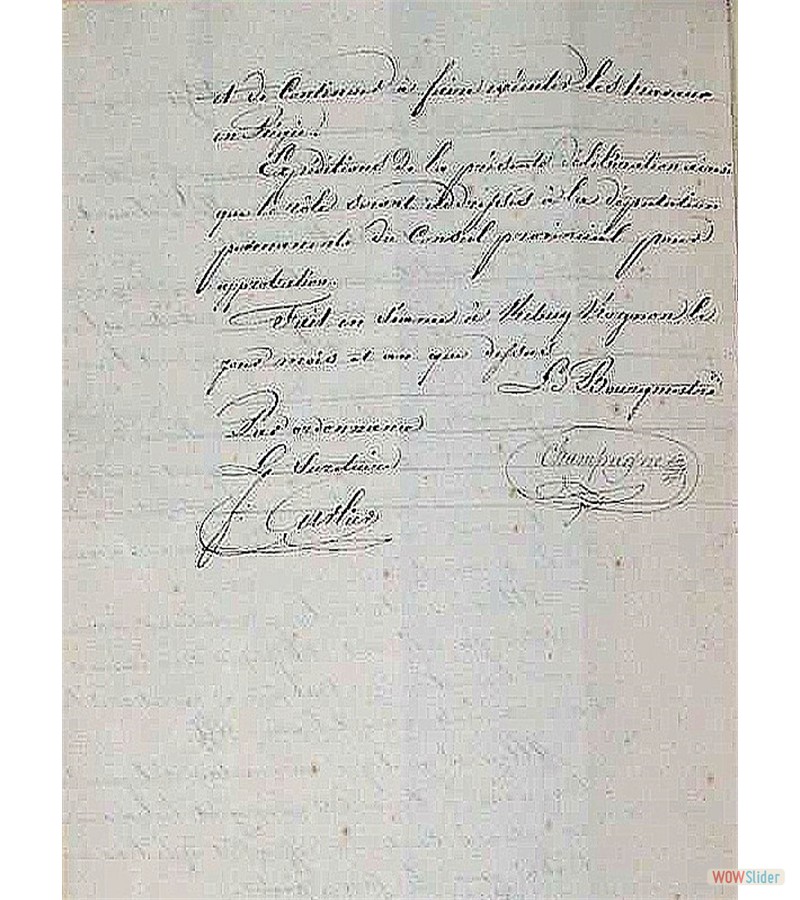 et de continuer à faire exécuter les travaux
en Régie.
Expéditions de la présente délibération ainsi
que le rôle seront adressés à la députation
permanente du Conseil provincial pour
approbation.
Fait en séance à les
jour mois et an que dessus
Le Bourgmestre
Par ordonnance
Le Secrétaire
Champagne
J. Carlier
WOWSlider